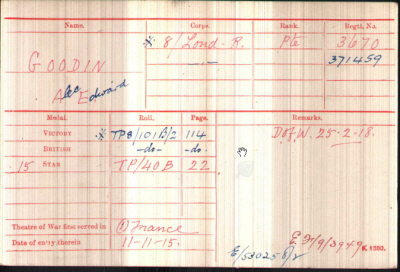 Name. Corps. Rank. Regtl. No.
※ 8/Lond. R. Pte 3670
GOODIN —"— 371459
Alec Edward
Medal. Roll. Page. Remarks.
VICTORY ※ TP8/101B/2 114 D of W. 25-2-18.
BRITISH -do- -do-
15 STAR TP/40B 22
Theatre of War first served in (1) France
Date of entry therein 11-11-15.
K 1380.